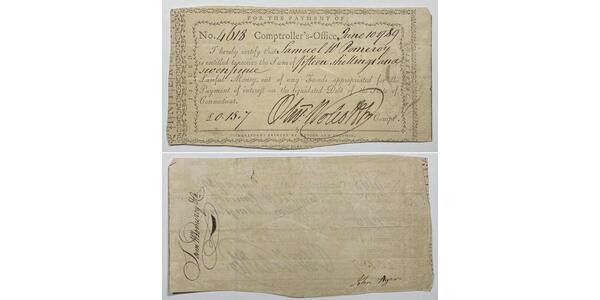 FOR THE PAYMENT OF
No. 4618 Comptroller's-Office, June 10 1789
I hereby certify that Samuel Wm Pomeroy
is entitled to receive the Sum of fifteen Shillings and
seven pence
Lawful Money, out of any Funds appropriated for the
Payment of interest on the liquidated Debt of the State of
Connecticut.
£ 0.15.7 Olivr Wolcott Jr Compt.
Saml Pomeroy
John